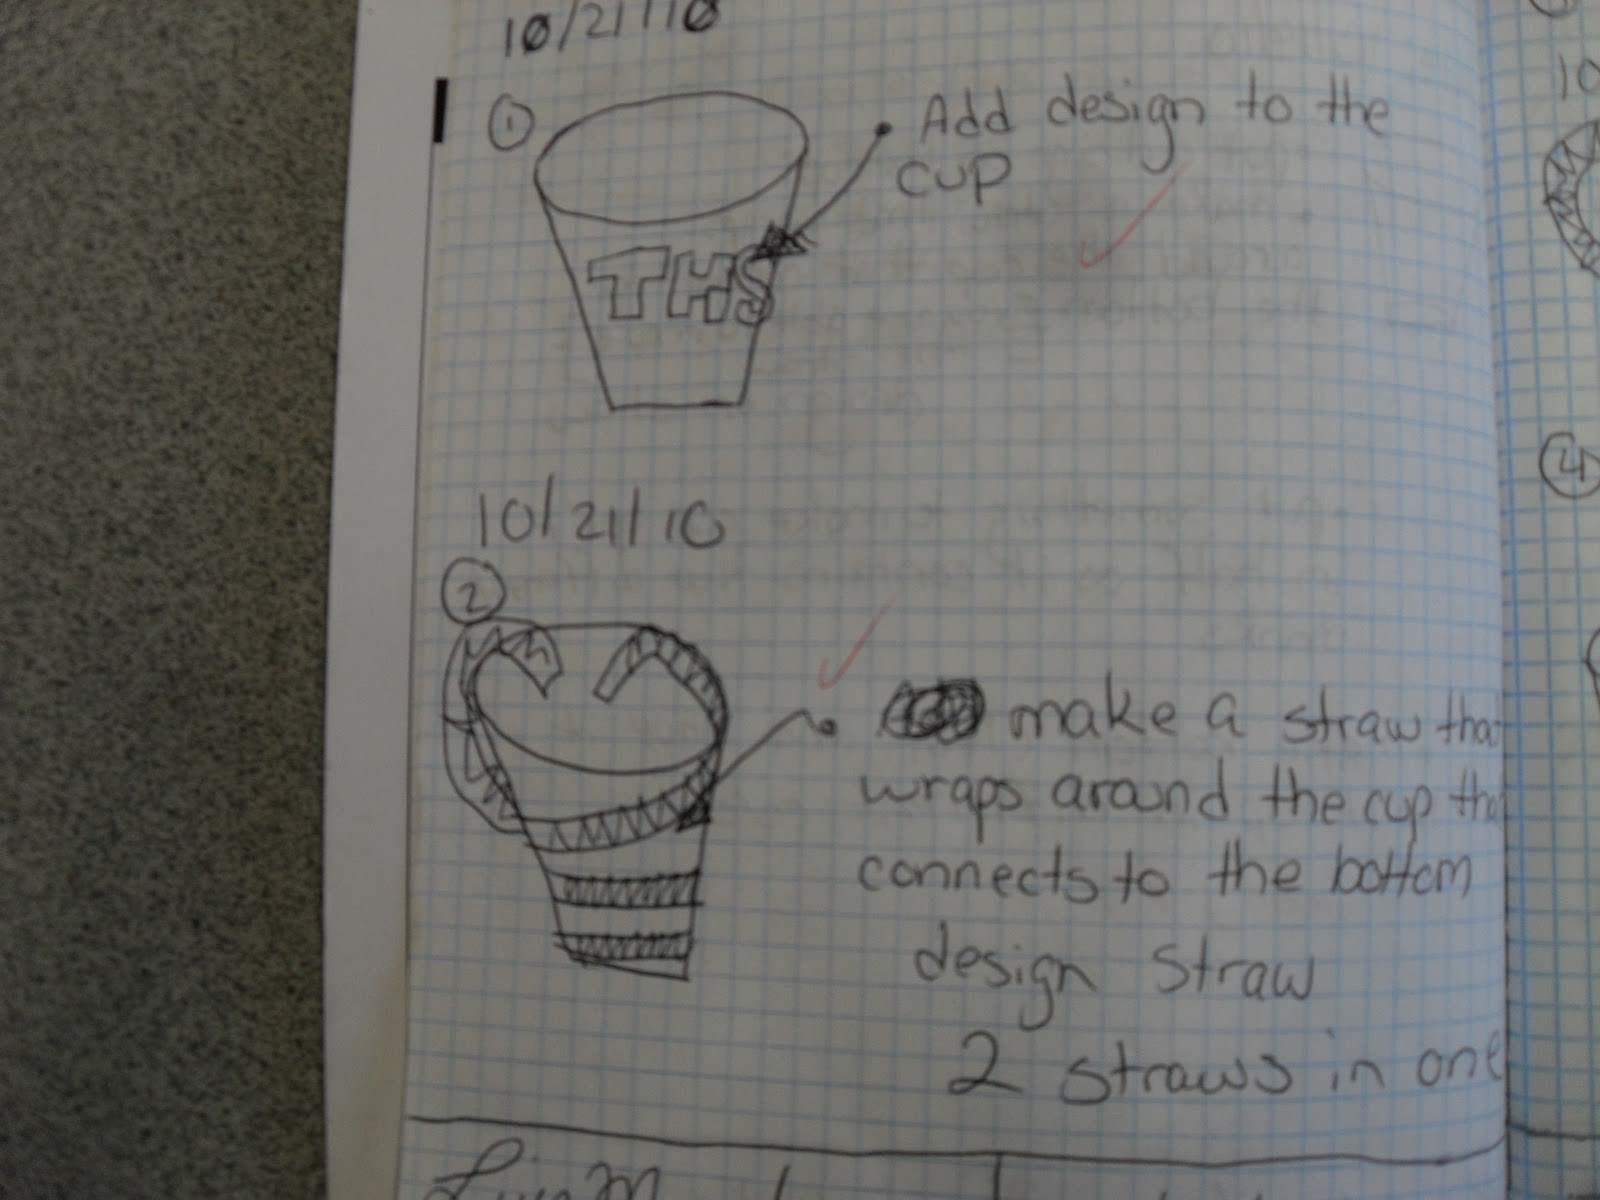 10/21/10
1
Add design to the
cup
THS
10/21/10
2
make a straw that
wraps around the cup
connects to the bottom
design straw
2 straws in one
10
4